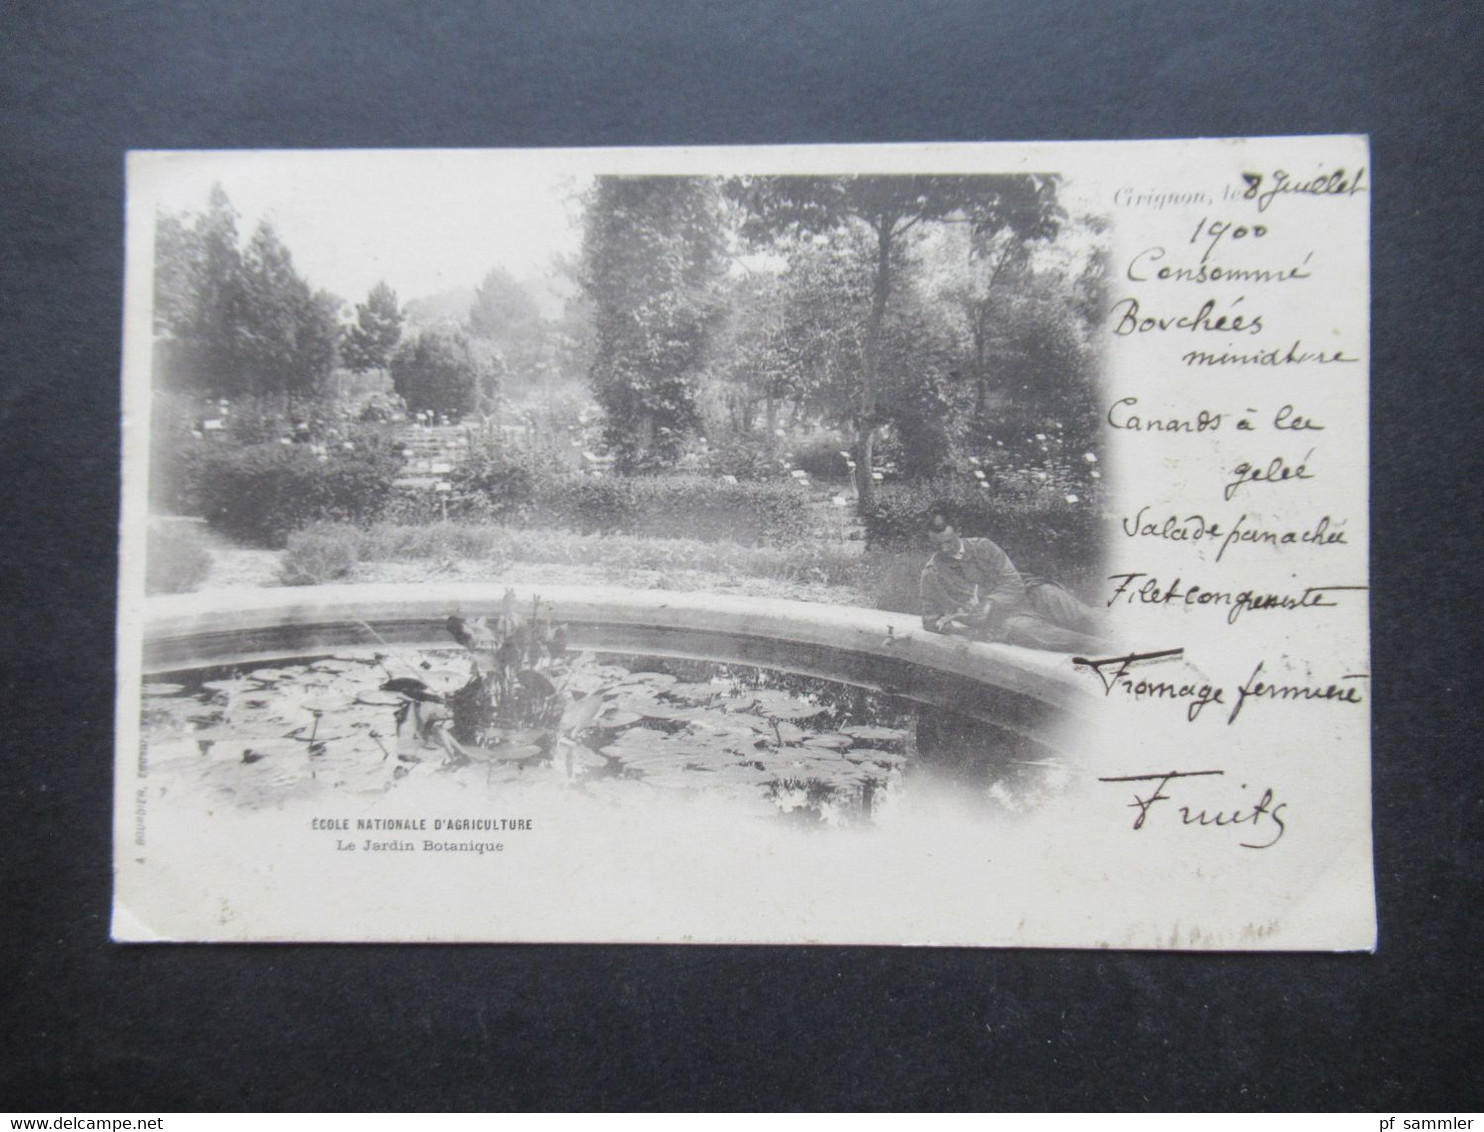 Grignon, le 8 Juillet
1900
Consommé
Bouchées
miniature
Canards à la
gelée
Salade panachée
Filet congreniste
Fromage fermière
Fruits
ÉCOLE NATIONALE D'AGRICULTURE
Le Jardin Botanique
A. BOURDIER,
www.delcampe.net
pf_sammler